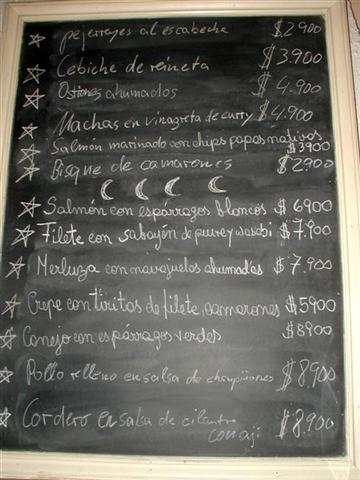 pejerrayes al escabeche $2900
Cebiche de reineta $3.900
Ostiones ahumados $4.900
Machas en vinagreta de curry $4.900
Salmón marinado con chips papas nativas
$3900
Bisque de camarones $2900
Salmón con espárragos blancos $6900
Filete con sabayón de puerre y wasabi $7.900
Merluza con navajuelas ahumadas $7.900
Crepe con tiritas de filete, camarones $5900
Conejo con espárragos verdes $8900
Pollo relleno en salsa de champiñones $8900
Cordero en salsa de cilantro $8.900
con ají